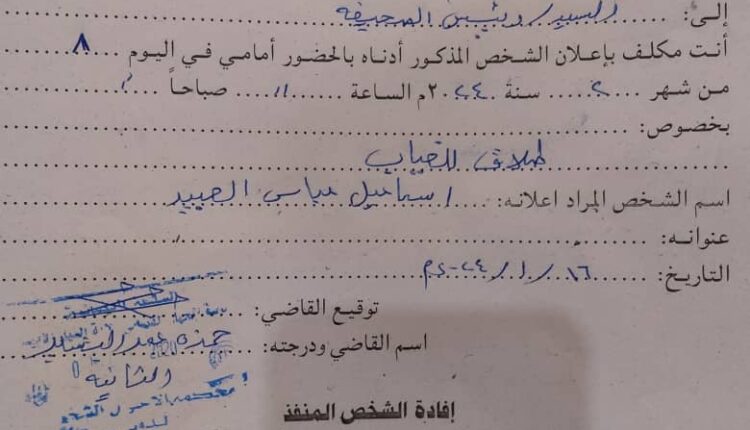 إلى: السيد/ رئيس الصحيفة
أنت مكلف بإعلان الشخص المذكور أدناه بالحضور أمامي في اليوم ٨
من شهر ٢ سنة ٢٠٢٤م الساعة ١١ صباحاً
بخصوص:
طلاق للغياب
اسم الشخص المراد اعلانه: اسماعيل عباس العبيد
عنوانه:
التاريخ: ١٦/١/٢٠٢٤م
توقيع القاضي:
اسم القاضي ودرجته: حمزة
الثانية
إفادة الشخص المنفذ